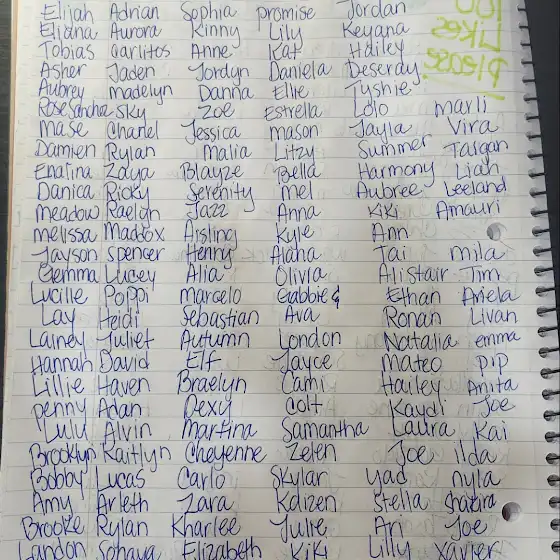 Elijah Adrian Sophia promise Jordan
Elidna Aurora Kinny Lily Keyana
Tobias Carlitos Anne Kat Hailey
Asher Jaden Jordyn Daniela Deseray
Aubrey madelyn Danna Ellie Tyshie
Rose Sancha Sky Zoe Estrella Lolo marli
Mase Chanel Jessica mason Jayla Vira
Damien Rylan Malia Litzy Summer Taigan
Enatina Zaya Blayze Bella Harmony Liah
Danica Ricky Serenity mel Aubree Leeland
meadow Raelyn Jazz Anna KiKi Amauri
melissa Maddox Aisling Kyle Ann
Jayson spencer Henry Alaha Jai mila
Gemma Lucey Alia Olivia Alistair Tim
Lucille Poppi marcelo Gabbie & Ethan Ariela
Lay Heidi Sebastian Ava Ronan Livan
Lainey Juliet Autumn London Natalia emma
Hannah David Elf Jayce mateo pip
Lillie Haven Braelyn Cami Hailey Anita
penny Adan Dexy Colt Kaydi Joe
Lulu Alvin Martina Samantha Laura Kai
Brooklyn Kaitlyn Cheyenne Zelen Joe ilda
Bobby Lucas Carlo Skylar yad nyla
Amy Arleth Zara Kaizen Stella Shakira
Brooke Rylan Kharlee Julie Ari Joe
Landon Sohaya Elizabeth KiKi Lilly Xavier
100
Likes
please